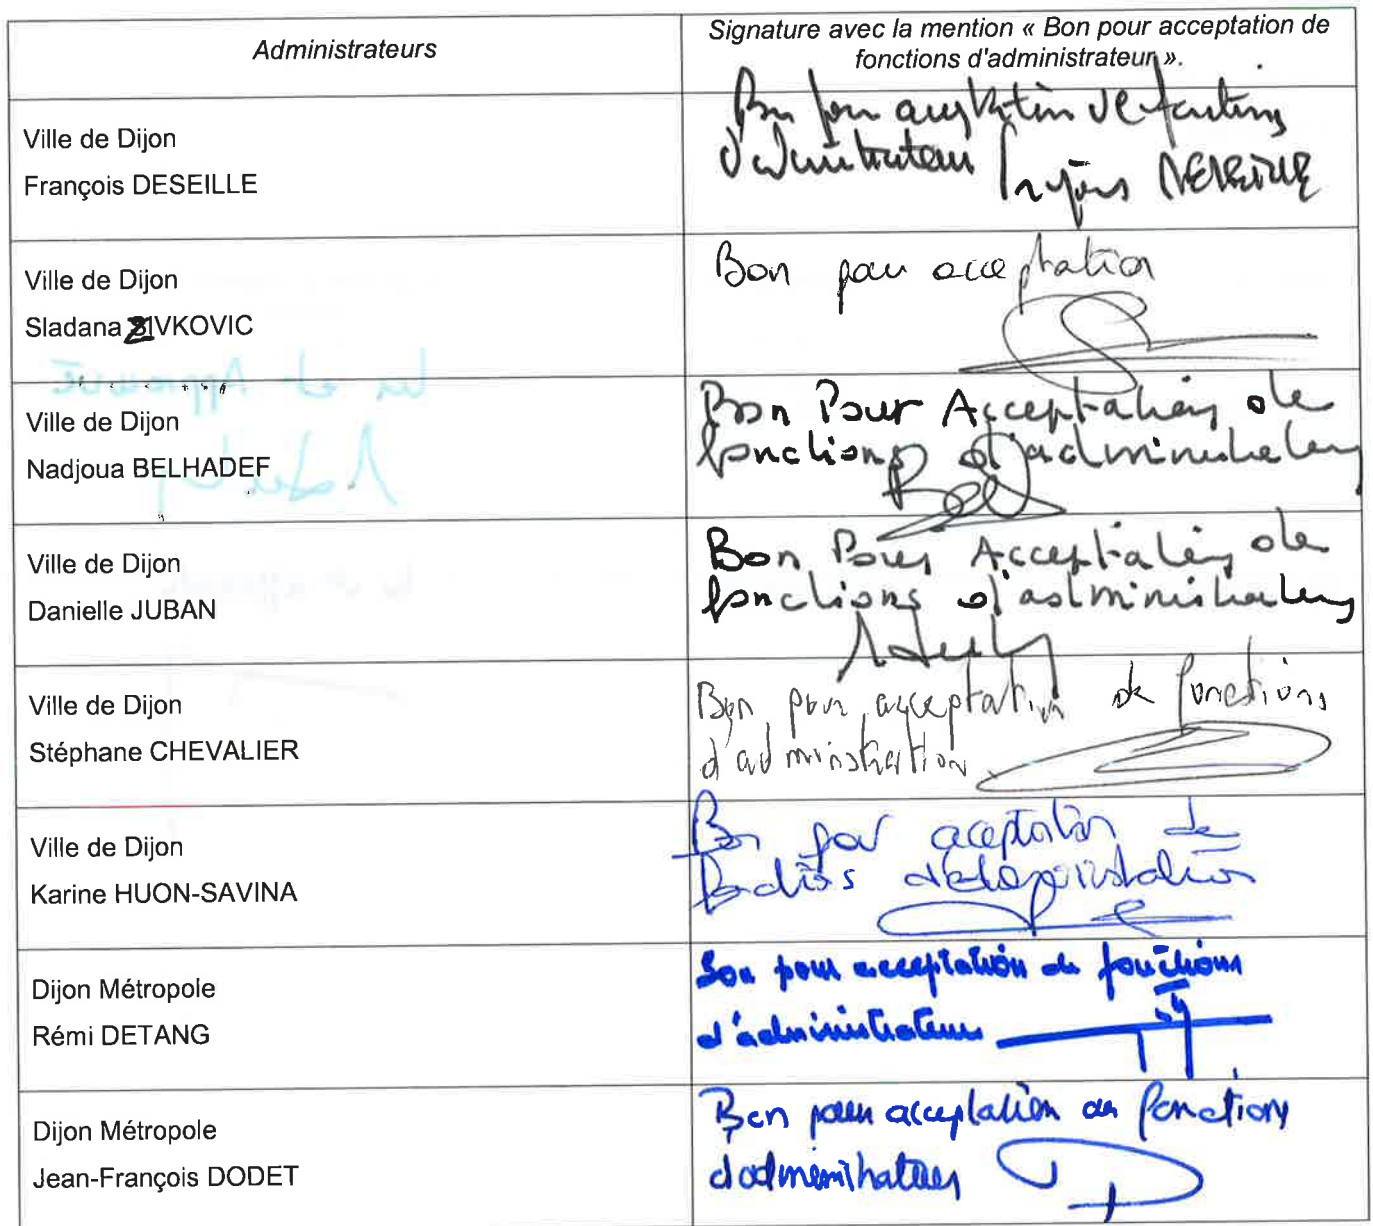 Administrateurs
Signature avec la mention « Bon pour acceptation de
fonctions d'administrateur ».
Ville de Dijon
François DESEILLE
Bon pour acceptation de fonctions
d'administrateur François DESEILLE
Ville de Dijon
Sladana ZIVKOVIC
Bon pour acceptation
Lu et Approuvé
Ville de Dijon
Nadjoua BELHADEF
Bon Pour Acceptation de
fonctions d'administrateur
Bel
Ville de Dijon
Danielle JUBAN
Bon Pour Acceptation de
fonctions d'administrateur
Ville de Dijon
Stéphane CHEVALIER
Bon pour acceptation de fonctions
d'administration
Ville de Dijon
Karine HUON-SAVINA
Bon pour acceptation de
Dijon Métropole
Rémi DETANG
Bon pour acceptation de fonctions
d'administrateur
Dijon Métropole
Jean-François DODET
Bon pour acceptation de fonctions
d'administrateur